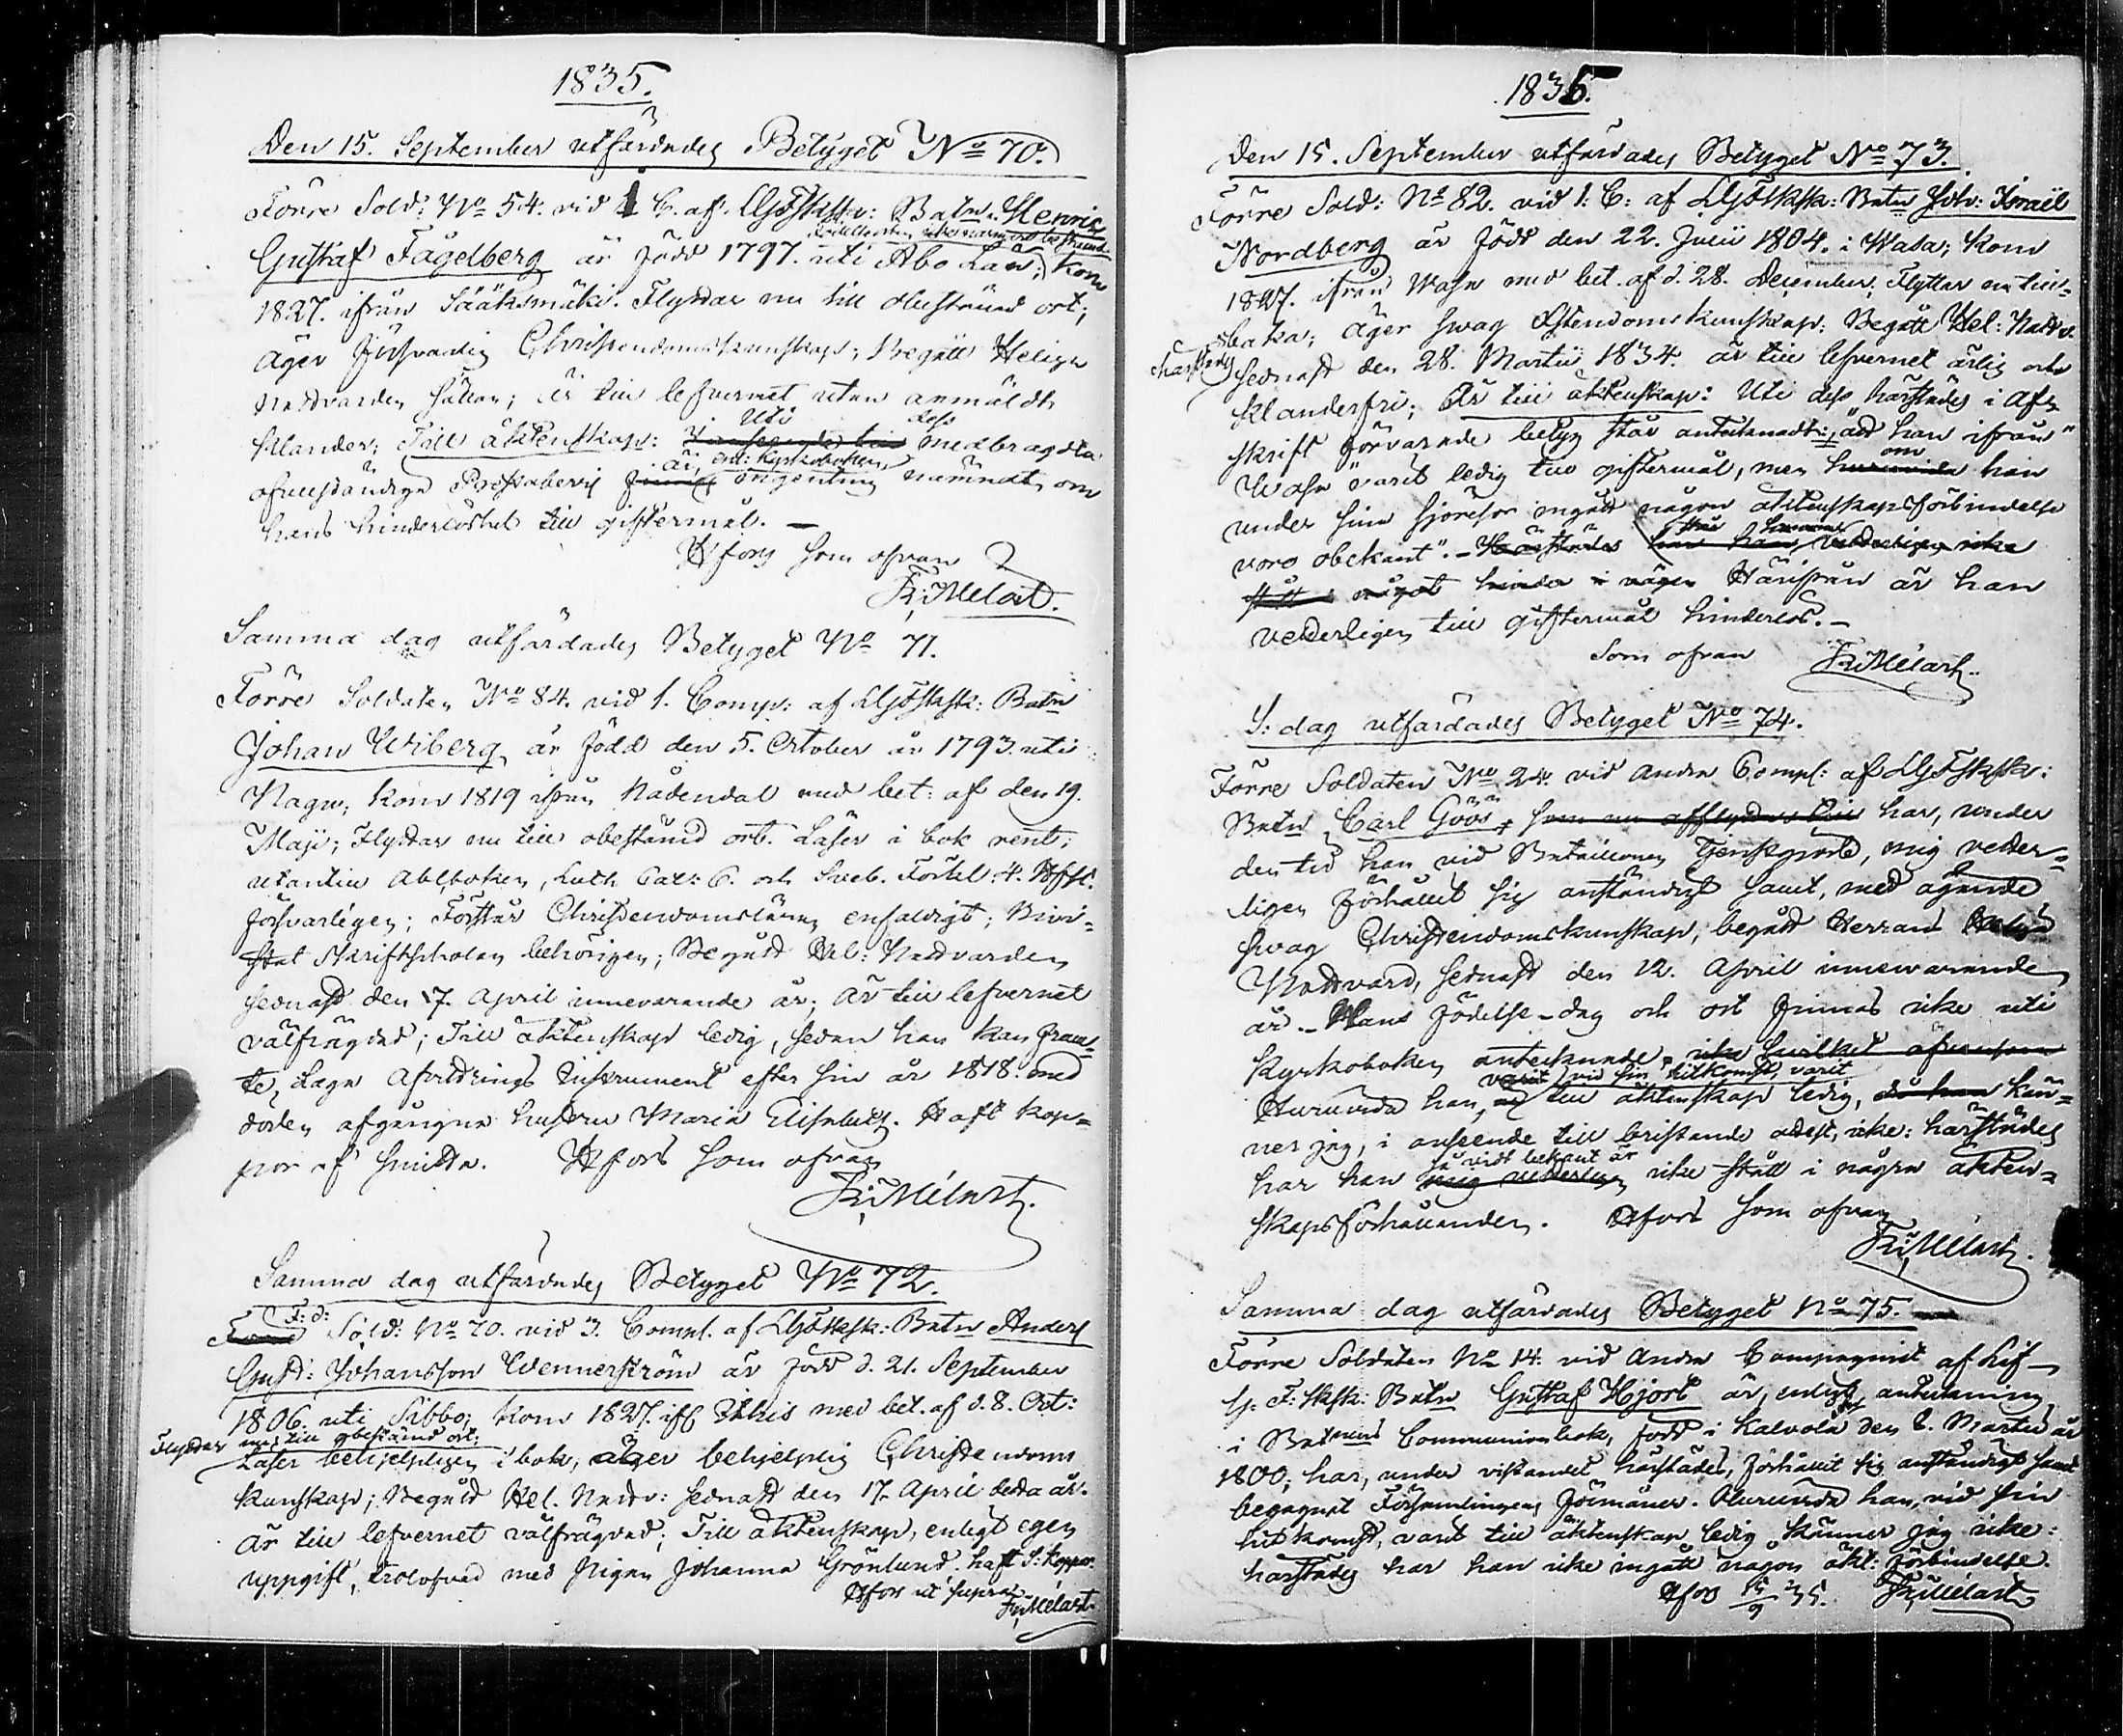 1835.
Den 15. September utfärdades Betyget No 70.
Förre Sold: No 54. vid 1 C. af LGFSkSk: Batn. Henric
Födelseorten icke närmare bestämd
Gustaf Fagelberg är född 1797. uti Åbo Län; kom
1827. ifrån Sääksmäki. Flyttar nu till obestämd ort;
äger försvarlig Christendomskunskap; Begått Heliga
Nattvarden sällan; är till lefvernet utan anmäldt
klander; Till äktenskap: Uti dess medbragdta
ofullständiga Prestabevis är, enl: Kyrkoboken, ingenting nämndt om
hans hinderlöshet till giftermål. —
Hfors som ofvan
Fr: Melart.
Samma dag utfärdades Betyget No 71.
Förre Soldaten No 84. vid 1. Comp: af LGFSkSk: Batn
Johan Wiberg, är född den 5. October år 1793. uti
Nagu; kom 1819 ifrån Nådendal med bet: af den 19.
Maji; Flyttar nu till obestämd ort. Läser i bok rent;
utantill Abcboken, Luth. Cat: C. och Sveb. Förkl: 4. Hfst.
försvarligen; Förstår Christendomsläran enfaldigt; Bivi-
stat Skriftskolan behörigen; Begått Hel: Nattvarden
sednast den 17. April innevarande år; Är till lefvernet
välfrägdad; Till äktenskap ledig, sedan han kan fram-
te, Laga Afvittrings Instrument efter sin år 1818. med
döden afgångna hustru Maria Elisabeth. Haft kop-
por af smitta. Hfors som ofvan
Fr: Melart.
Samma dag utfärdades Betyget No 72.
F: d: Sold: No 70. vid 3. Compl. af LGFSkSk: Batn Anders
Gust: Johansson Wennerström är född d. 21. September
1806. uti Sibbo; kom 1827. ifr Ithis med bet. af d. 8. Oct:
Flyttar nu till obestämd ort;
Läser behjelpligen i bok, äger behjelplig Christendoms
kunskap; Begått Hel. Nattv: sednast den 17. April detta år.
är till lefvernet välfrägdad; Till äktenskap, enligt egen
uppgift, trolofvad med Pigan Johanna Grönlund. haft S: koppor.
Hfors ut supra
Fr: Melart.
1835.
Den 15. September utfärdades Betyget No 73.
Förre Sold: No 82. vid 1: C: af LGFSkSk: Batn Joh: Israël
Nordberg är född den 22. Junii 1804. i Wasa; kom
1827. ifrån Wasa med bet. af d. 28. December. Flyttar nu till-
baka; äger svag Xstendomskunskap; Begått Hel: Nattv.
härstädes sednast den 28. Martii 1834. är till lefvernet ärlig och
klanderfri; Är till äktenskap: Uti dess härstädes i af-
skrift förvarade betyg står antecknadt: "att han ifrån"
Wasa "varit ledig till giftermål, men om han
under sina sjöresor ingått någon äktenskapsförbindelse
voro obekant". – Härstädes har han, vederligen icke
stått i något hinder i vägen Härifrån är han
vederligen till giftermål hinderlös. –
Som ofvan Fr: Melart.
S: dag utfärdades Betyget No 74.
Förre Soldaten No 24. vid Andra Compl: af LGFSkSk:
Batn Carl Göös, som nu afflyttar till har, under
den tid han vid Bataillonen tjenstgjort, mig veder-
ligen förhållit sig anständigt samt, med ägande
svag Christendomskunskap, begått Herrans
Nattvard, sednast den 12. April innevarande
år. – Hans födelse-dag och ort finnas icke uti
Kyrkoboken antecknade
Huruvida han, varit vid sin hitkomst till äktenskap ledig, då han kän-
ner jag, i anseende till bristande attest, icke: härstädes
har han så vidt bekant är icke stått i några äkten-
skapsförhållanden. Hfors som ofvan
Fr: Melart.
Samma dag utfärdades Betyget No 75.
Förre Soldaten No 14. vid Andra Compagniet af Lif-
G. F: SkSk: Batn Gustaf Hjort är, enligt anteckning
i Batnens Communionbok, född i Kalvola den 8. Martii år
1800; har, under vistandet härstädes, förhållit sig anständigt samt
begagnat Församlingens förmåner. Huruvida han, vid sin
hitkomst, varit till äktenskap ledig känner jag icke:
härstädes har han icke ingått någon äkt: förbindelse.
Hfors 15/9 35. Fr: Melart